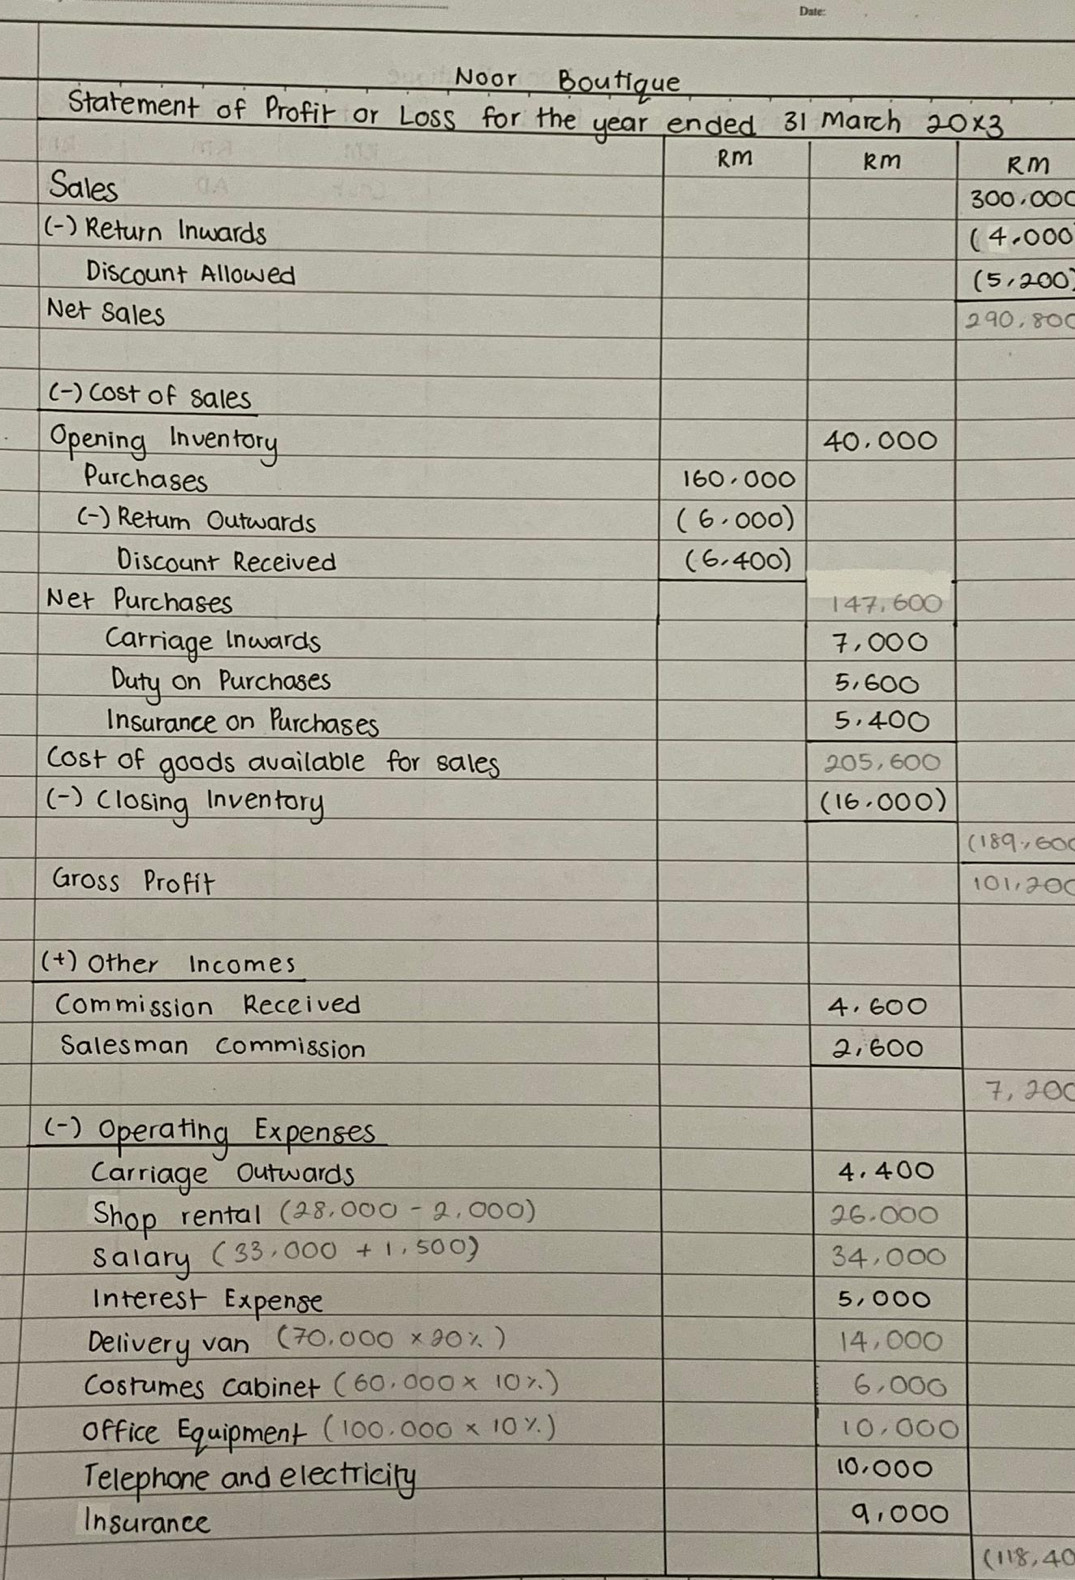 Date:
Noor Boutique
Statement of Profit or Loss for the year ended 31 March 20x3
RM RM RM
Sales 300,000
(-) Return Inwards (4,000
Discount Allowed (5,200)
Net Sales 290,800
(-) Cost of sales
Opening Inventory 40,000
Purchases 160,000
(-) Return Outwards (6,000)
Discount Received (6,400)
Net Purchases 147,600
Carriage Inwards 7,000
Duty on Purchases 5,600
Insurance on Purchases 5,400
Cost of goods available for sales 205,600
(-) Closing Inventory (16,000)
(189,600
Gross Profit 101,200
(+) Other Incomes
Commission Received 4,600
Salesman Commission 2,600
7,200
(-) Operating Expenses
Carriage Outwards 4,400
Shop rental (28,000 - 2,000) 26,000
Salary (33,000 + 1,500) 34,000
Interest Expense 5,000
Delivery van (70,000 x 20%) 14,000
Costumes Cabinet (60,000 x 10%) 6,000
Office Equipment (100,000 x 10%) 10,000
Telephone and electricity 10,000
Insurance 9,000
(118,40